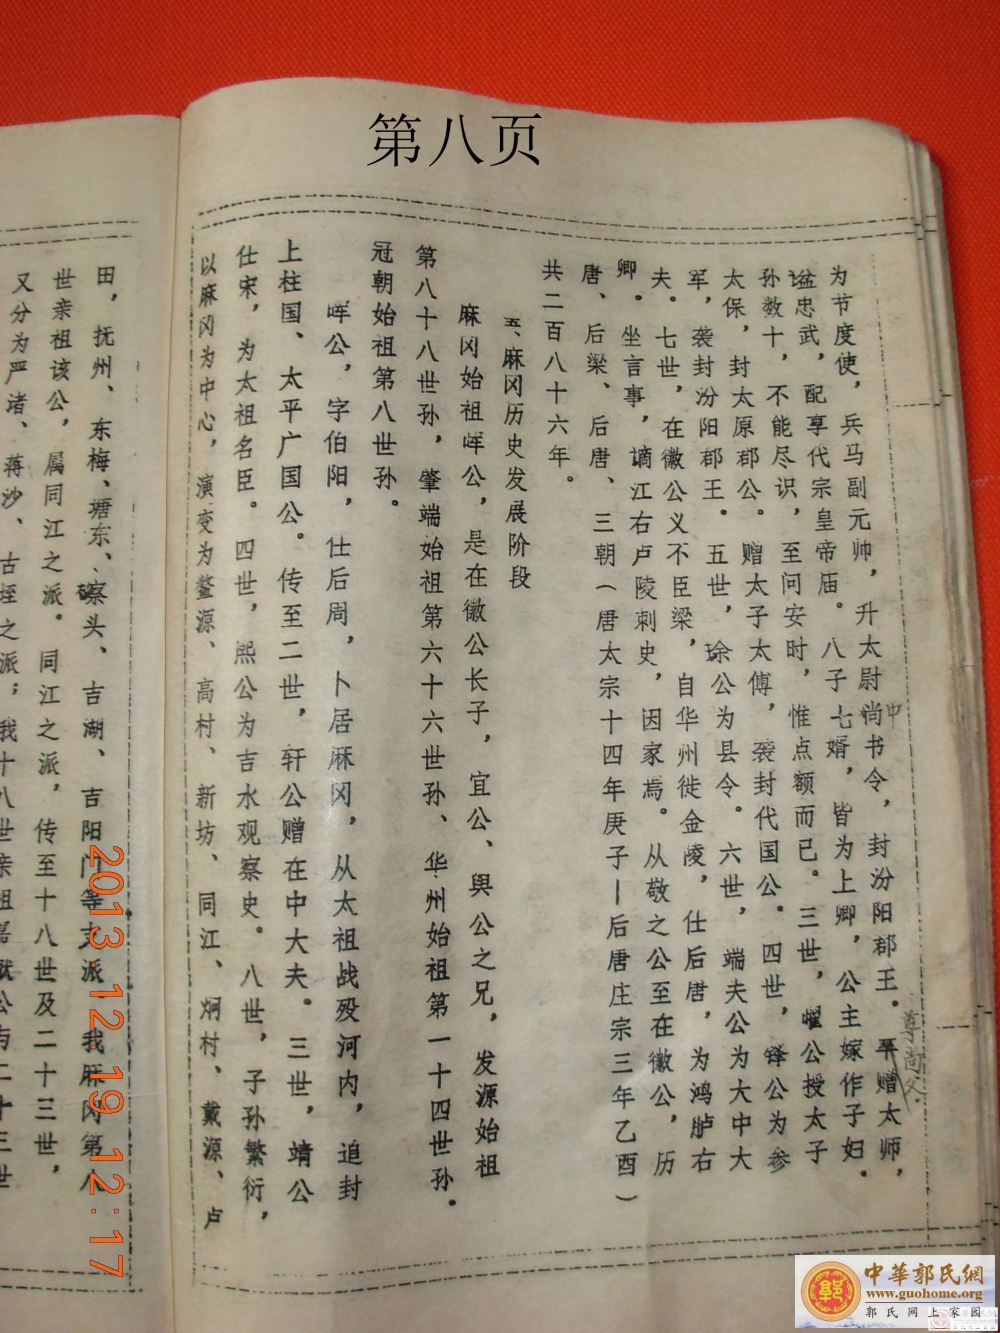 第八页
为节度使，兵马副元帅，升太尉尚书令，封汾阳郡王。平赠太师，
中
尊尚父，
谥忠武，配享代宗皇帝庙。八子七婿，皆为上卿，公主嫁作子妇。
孙数十，不能尽识，至问安时，惟点额而已。三世，曜公授太子
太保，封太原郡公。赠太子太傅，袭封代国公。四世，锋公为参
军，袭封汾阳郡王。五世，瑜公为县令。六世，端夫公为大中大
夫。七世，在徽公义不臣梁，自华州徙金陵，仕后唐，为鸿胪右
卿。坐言事，谪江右卢陵刺史，因家焉。从敬之公至在徽公，历
唐、后梁、后唐、三朝（唐太宗十四年庚子—后唐庄宗三年乙酉）
共二百八十六年。
五、麻冈历史发展阶段
麻冈始祖晖公，是在徽公长子，宜公、舆公之兄，发源始祖
第八十八世孙，肇端始祖第六十六世孙、华州始祖第一十四世孙。
冠朝始祖第八世孙。
晖公，字伯阳，仕后周，卜居麻冈，从太祖战殁河内，追封
上柱国、太平广国公。传至二世，轩公赠在中大夫。三世，靖公
仕宋，为太祖名臣。四世，熙公为吉水观察史。八世，子孙繁衍，
以麻冈为中心，演变为鳌源、高村、新坊、同江、炯村、戴源、卢
田，抚州、东梅、塘东、寮头、吉湖、吉阳门等支派，我麻冈第八
世亲祖该公，属同江之派。同江之派，传至十八世及二十三世，
又分为严渚、蒋沙、古坵之派；我十八世亲祖嘉猷公与二十三世
2013.12.19 12:17
中華郭氏網
www.guohome.org
郭氏网上家园
郭